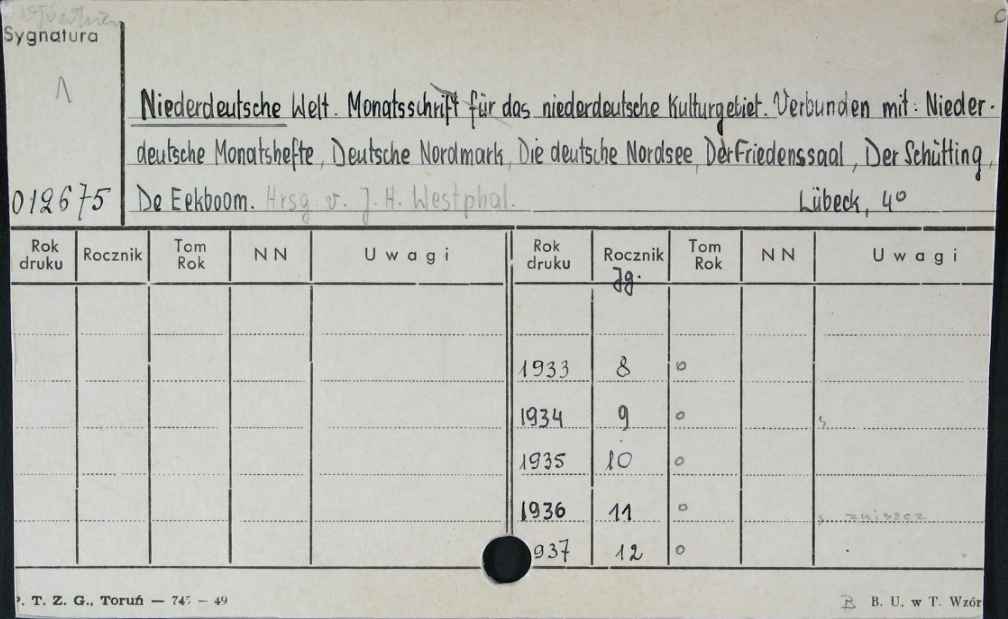 Sygnatura
Niederdeutsche Welt. Monatsschrift für das niederdeutsche Kulturgebiet. Verbunden mit: Nieder-
deutsche Monatshefte, Deutsche Nordmark, Die deutsche Nordsee, Der Friedenssaal, Der Schütting,
012675 De Eekboom. Hrsg v. J. H. Westphal. Lübeck, 4º
Rok druku Rocznik Tom Rok NN Uwagi Rok druku Rocznik Tom Rok NN Uwagi
Jg.
1933 8 o
1934 9 o
1935 10 o
1936 11 o zniszcz
937 12 o
. T. Z. G., Toruń — 745 — 49 B B. U. w T. Wzór